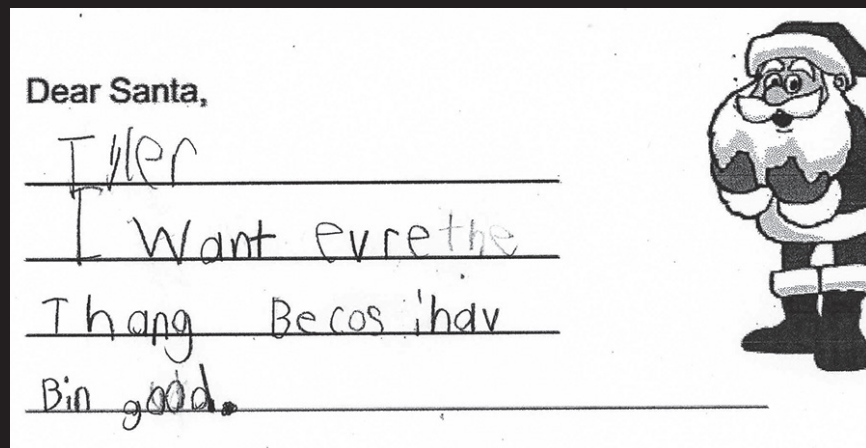 Dear Santa,
Tyler
I Want evrethe
Thang Becos ihav
Bin good.